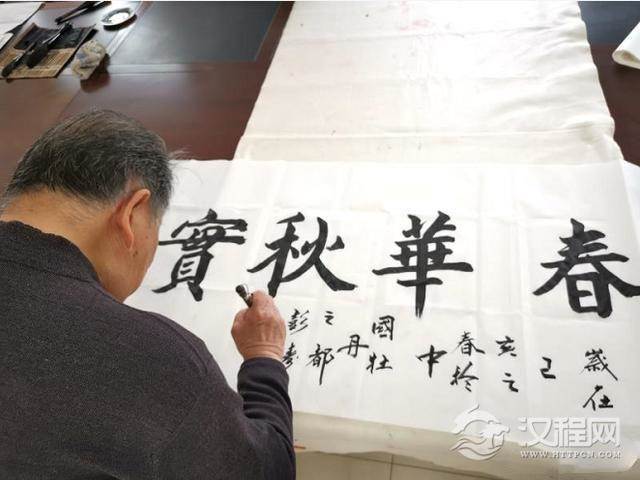 春華秋實
歲在
己
亥之
春於
中
國牡
丹
之都
彭
汉程网
WWW.HTTPCN.COM